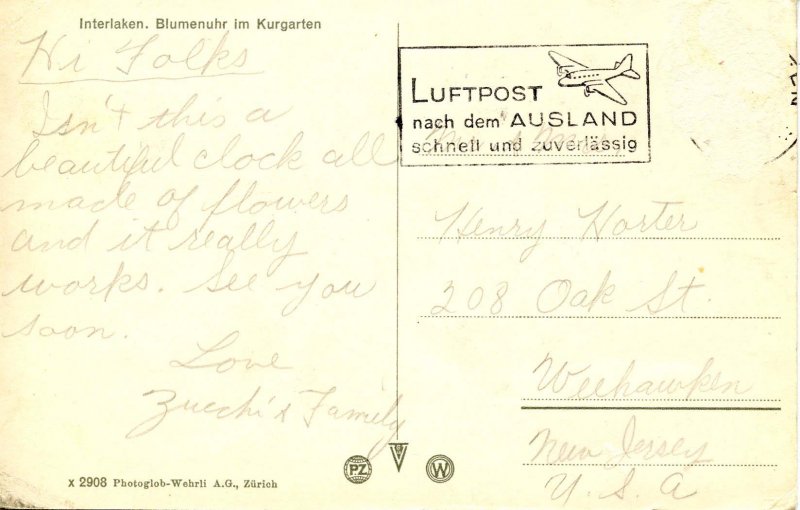 Interlaken. Blumenuhr im Kurgarten
Hi Folks
Isn't this a
beautiful clock all
made of flowers
and it really
works. See you
soon.
Love
Zucchi & Family
LUFTPOST
nach dem AUSLAND
schnell und zuverlässig
Mr. & Mrs.
Henry Horter
208 Oak St.
Weehawken
New Jersey
U. S. A
x 2908 Photoglob-Wehrli A.G., Zürich
PZ
W